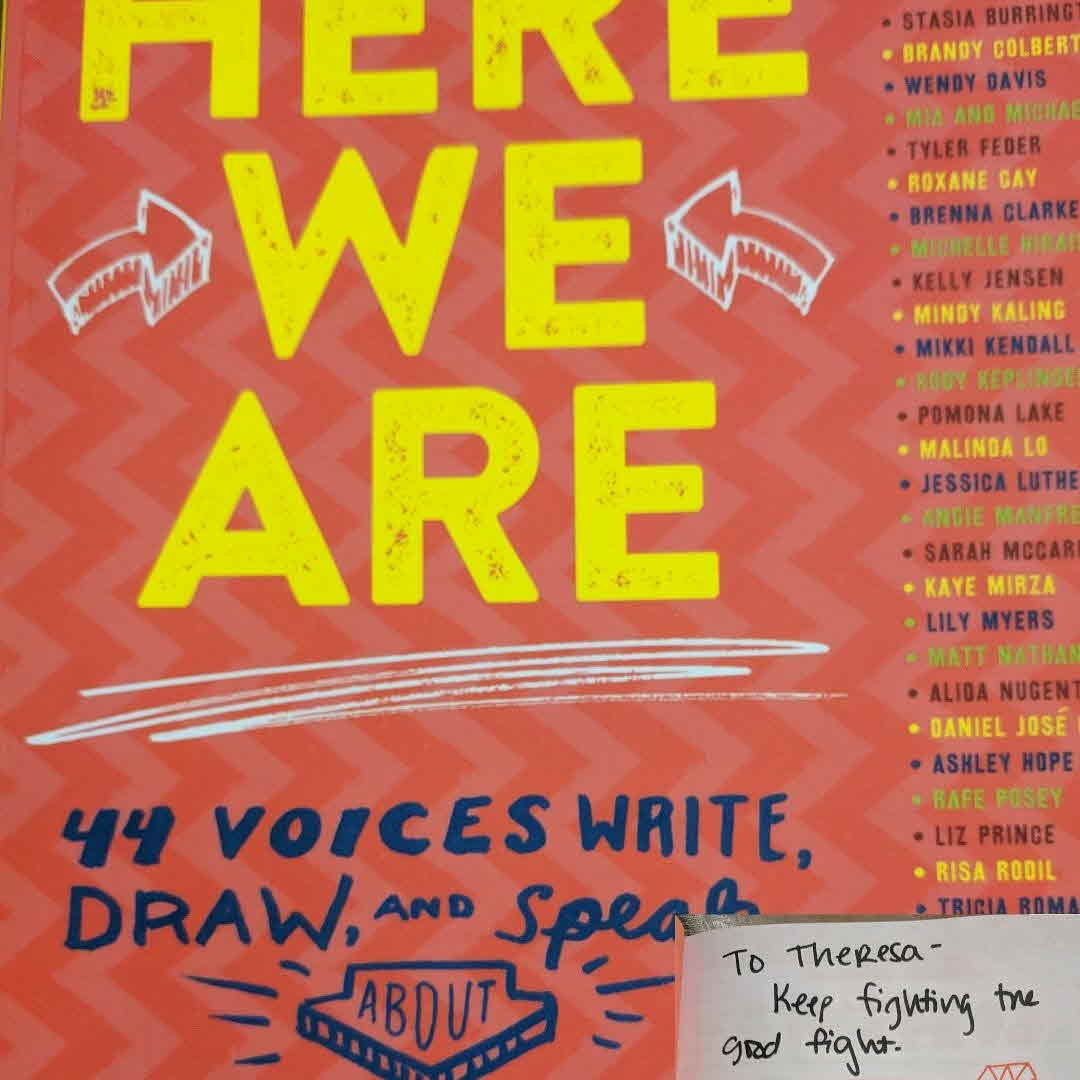 HERE
WE
ARE
44 VOICES WRITE,
DRAW, AND Speak
ABOUT
• STASIA
• BRANDY COLBERT
• WENDY DAVIS
• MIA AND
• TYLER FEDER
• ROXANE GAY
• BRENNA CLARKE
• MICHELLE
• KELLY JENSEN
• MINDY KALING
• MIKKI KENDALL
• KODY
• POMONA LAKE
• MALINDA LO
• JESSICA
• ANGIE
• SARAH
• KAYE MIRZA
• LILY MYERS
• MATT NATHAN
• ALIDA NUGENT
• DANIEL JOSÉ
• ASHLEY HOPE
• RAFE POSEY
• LIZ PRINCE
• RISA RODIL
• TRICIA ROMA
To Theresa-
Keep fighting the
good fight.